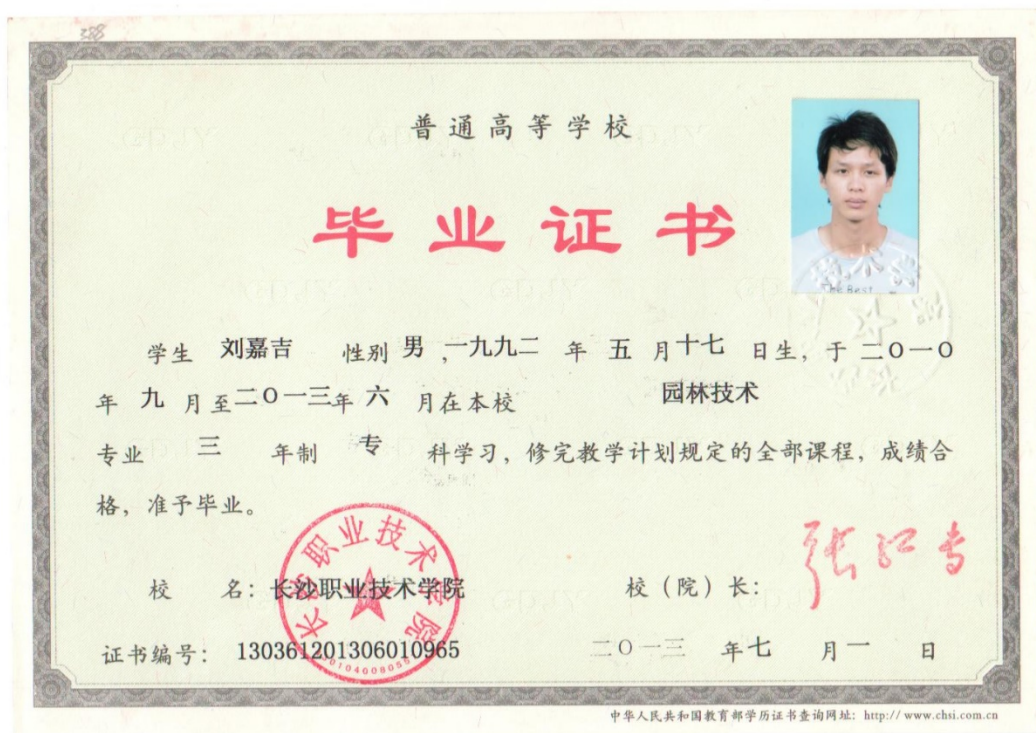 388
普通高等学校
毕业证书
The Best
学生 刘嘉吉 性别 男 ,一九九二 年 五 月十七 日生，于 二O一O
年 九 月至二O一三年 六 月在本校 园林技术
专业 三 年制 专 科学习，修完教学计划规定的全部课程，成绩合
格，准予毕业。
长沙职业技术学院
校 名：长沙职业技术学院 校（院）长：
证书编号： 130361201306010965 二O一三 年七 月一 日
中华人民共和国教育部学历证书查询网址：http://www.chsi.com.cn